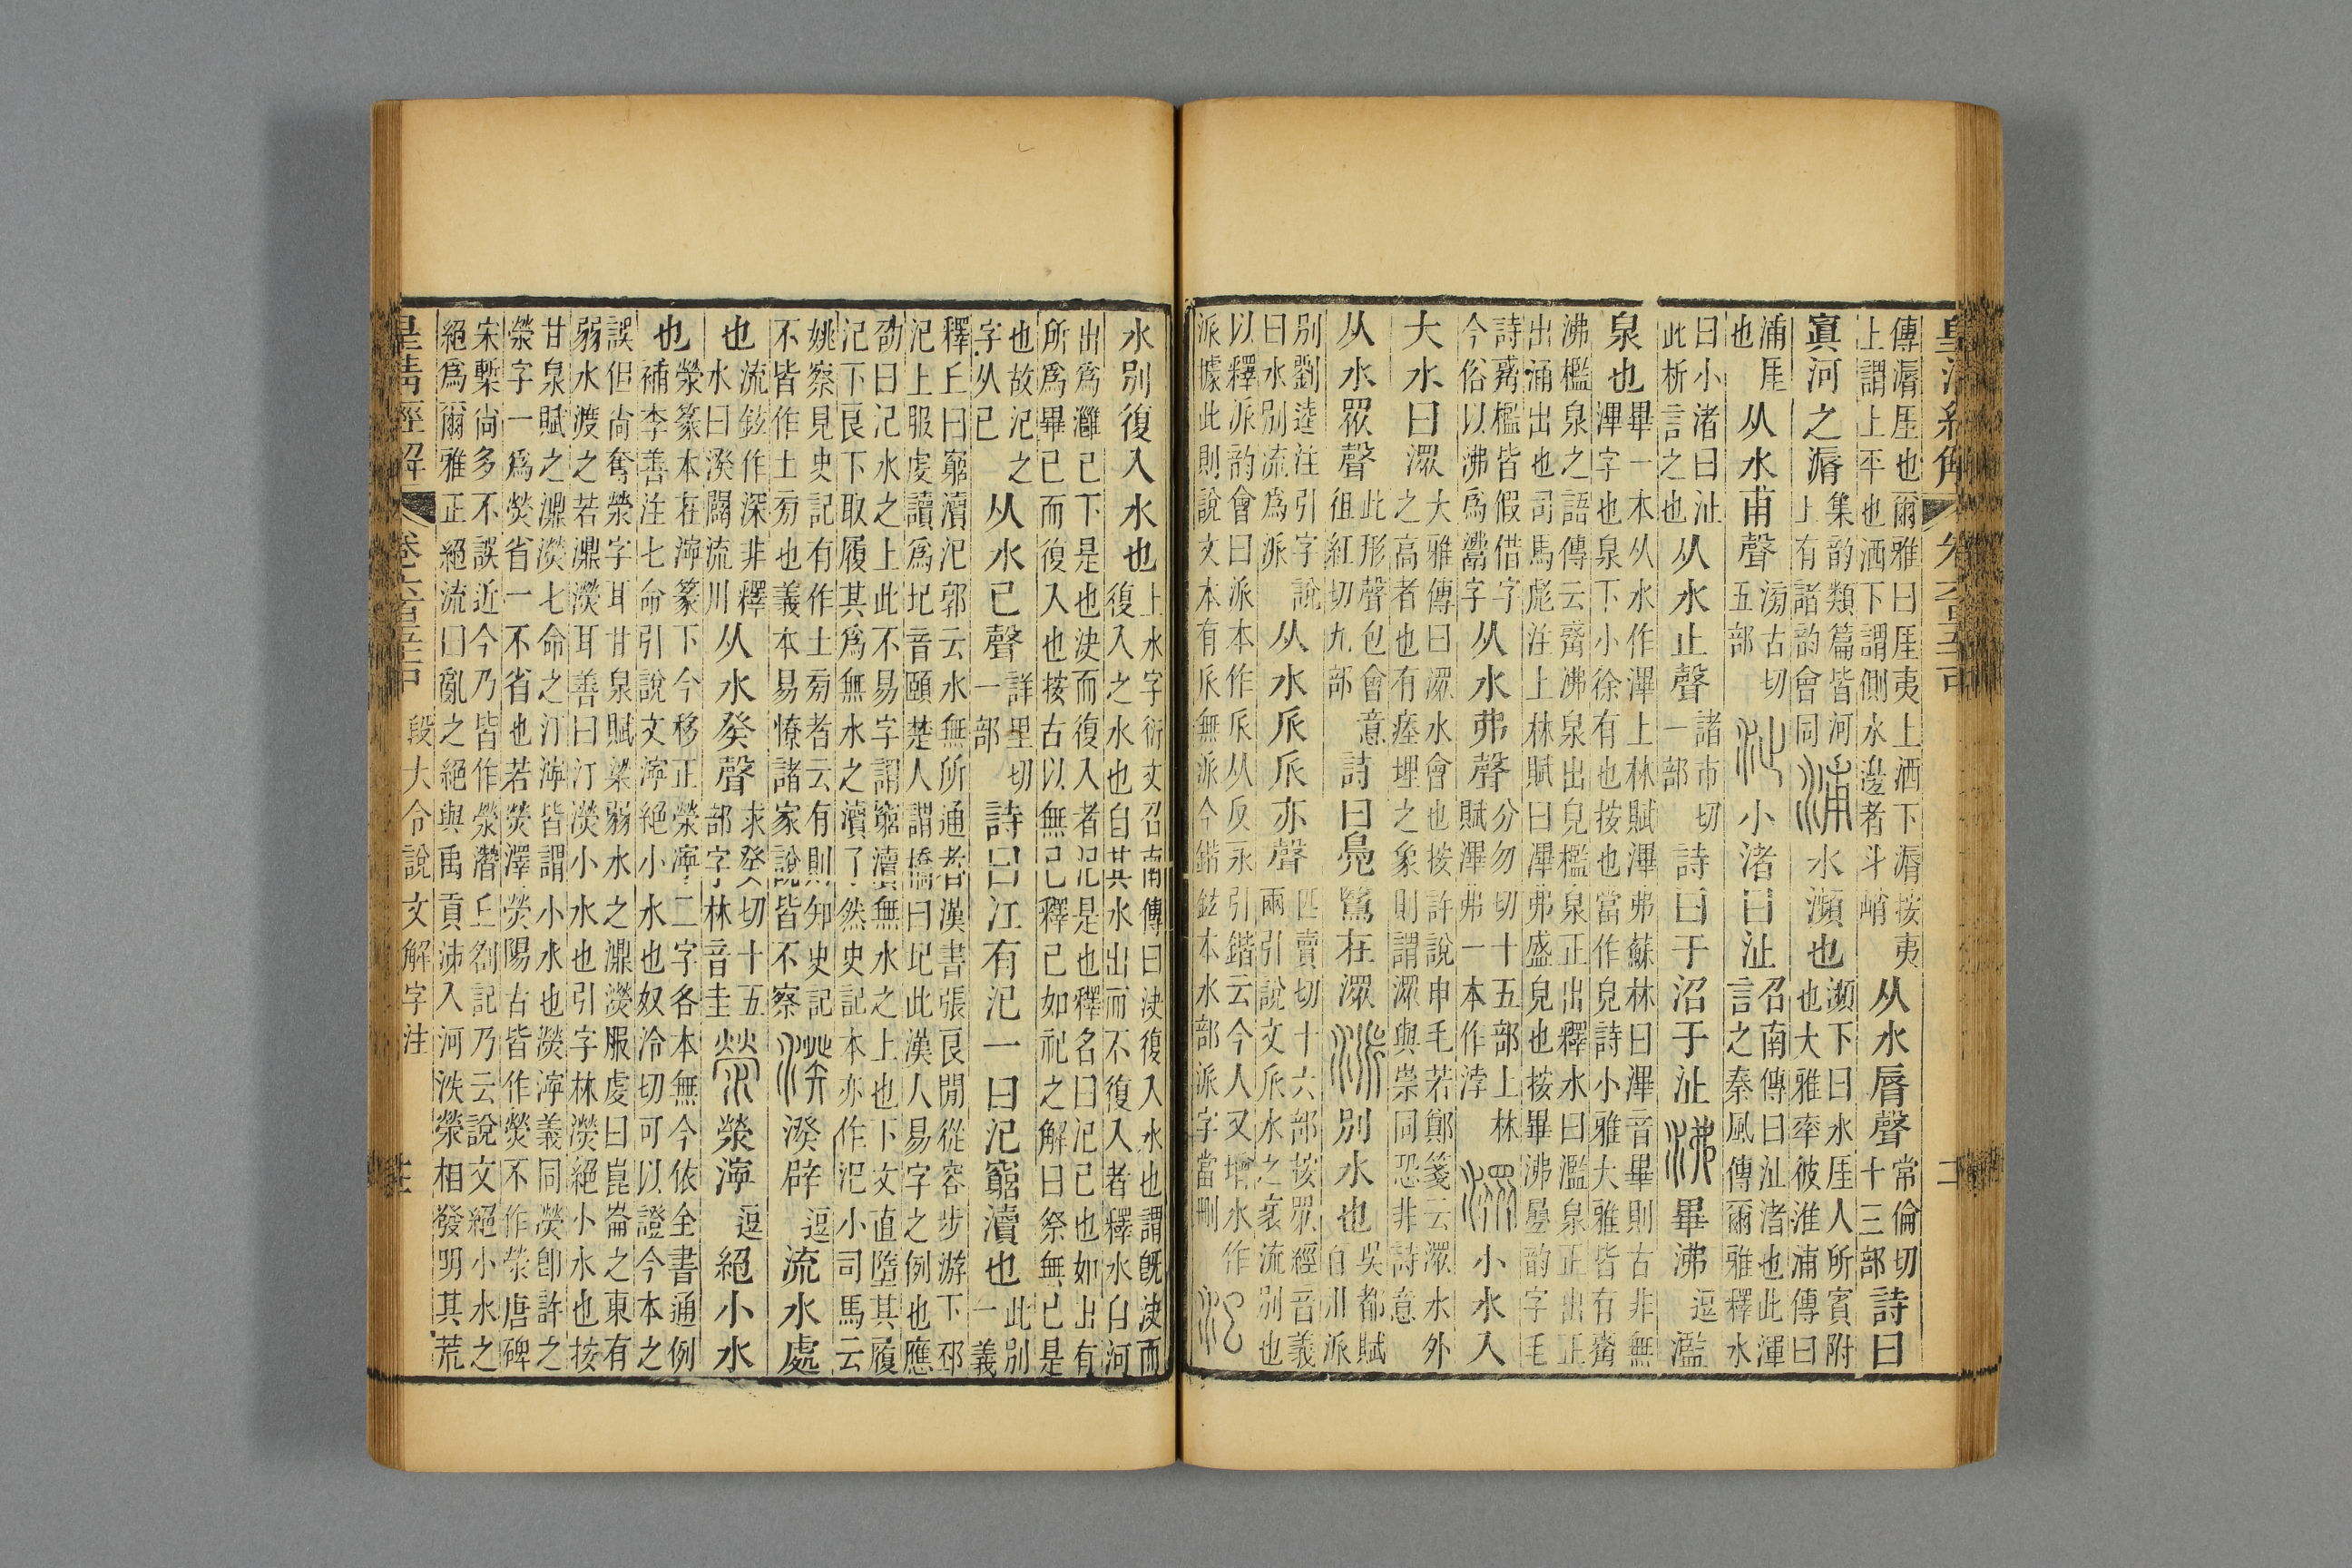 傳漘厓也爾雅曰厓夷上洒下漘按夷
上謂上平也洒下謂側水邊者斗峭
从水脣聲
常倫切
十三部
詩曰
寘河之漘
集韵類篇皆河
上有諸韵會同
浦
水瀕也
瀕下曰水厓人所賓附
也大雅率彼淮浦傳曰
浦厓
也
从水甫聲
滂古切
五部
沚
小渚曰沚
召南傳曰沚渚也此渾
言之秦風傳爾雅釋水
曰小渚曰沚
此析言之也
从水止聲
諸市切
一部
詩曰于沼于沚
沸
畢沸
逗
濫
泉也
畢一本从水作滭上林賦滭弗蘇林曰滭音畢則古非無
滭字也泉下小徐有也按也當作皃詩小雅大雅皆有觱
沸檻泉之語傳云觱沸泉出皃檻泉正出釋水曰濫泉正出正
出涌出也司馬彪注上林賦曰滭弗盛皃也按畢沸㬪韵字毛
詩觱檻皆假借字
今俗以沸爲鬻字
从水弗聲
分勿切十五部上林
賦滭弗一本作浡
潀
小水入
大水曰潀
大雅傳曰潀水會也按許說申毛若鄭箋云潀水外
之高者也有瘞埋之象則謂潀與崇同恐非詩意
从水眾聲
此形聲包會意
徂紅切九部
詩曰鳧鷖在潀
派
別水也
吳都賦
百川派
別劉逵注引字說
曰水別流爲派
从水𠂢𠂢亦聲
匹賣切十六部按眾經音義
兩引說文𠂢水之衺流別也
以釋派韵會曰派本作𠂢从反永引鍇云今人又增水作
派據此則說文本有𠂢無派今鍇鉉本水部派字當刪
汜
水別復入水也
上水字衍文召南傳曰決復入水也謂旣決而
復入之水也自其水出而不復入者釋水自河
出爲灉已下是也決而復入者汜是也釋名曰汜已也如出有
所爲畢已而復入也按古以無已釋已如祀之解曰祭無已是
也故汜之
字从已
从水已聲
詳里切
一部
詩曰江有汜一曰汜窮瀆也
此別
一義
釋丘曰窮瀆汜郭云水無所通者漢書張良閒從容步游下邳
汜上服虔讀爲圯音頤楚人謂橋曰圯此漢人易字之例也應
劭曰汜水之上此不易字謂窮瀆無水之上也下文直墮其履
汜下良下取履其爲無水之瀆了然史記本亦作汜小司馬云
姚察見史記有作土㫄者云有則知史記
不皆作土㫄也義本易憭諸家說皆不察
湀
湀辟
逗
流水處
也
流鉉作深非釋
水曰湀闢流川
从水癸聲
求癸切十五
部字林音圭
滎
滎濘
逗
絕小水
也
滎篆本在濘篆下今移正滎濘二字各本無今依全書通例
補李善注七命引說文濘絕小水也奴冷切可以證今本之
誤但尚奪滎字耳甘泉賦梁弱水之濎濙服虔曰崑崙之東有
弱水渡之若濎濙耳善曰汀濙小水也引字林濙絕小水也按
甘泉賦之濎濙七命之汀濘皆謂小水也濙濘義同濙卽許之
滎字一爲熒省一不省也若熒澤熒陽古皆作熒不作滎唐碑
宋槧尚多不誤近今乃皆作滎潛丘劄記乃云說文絕小水之
絕爲爾雅正絕流曰亂之絕與禹貢沛入河泆滎相發明其荒
皇清經解
段大令說文解字注